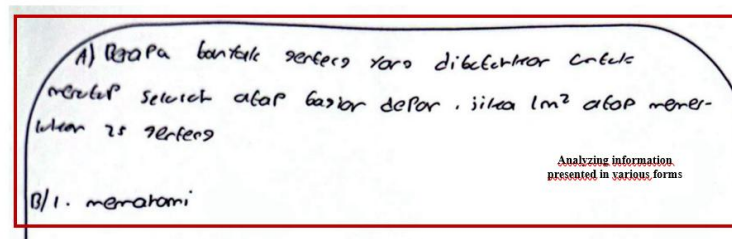 A) Berapa banyak genteng yang dibutuhkan untuk
menutup seluruh atap bagian depan. jika 1m² atap memer-
lukan 25 genteng
Analyzing information
presented in various forms
B/1. memahami